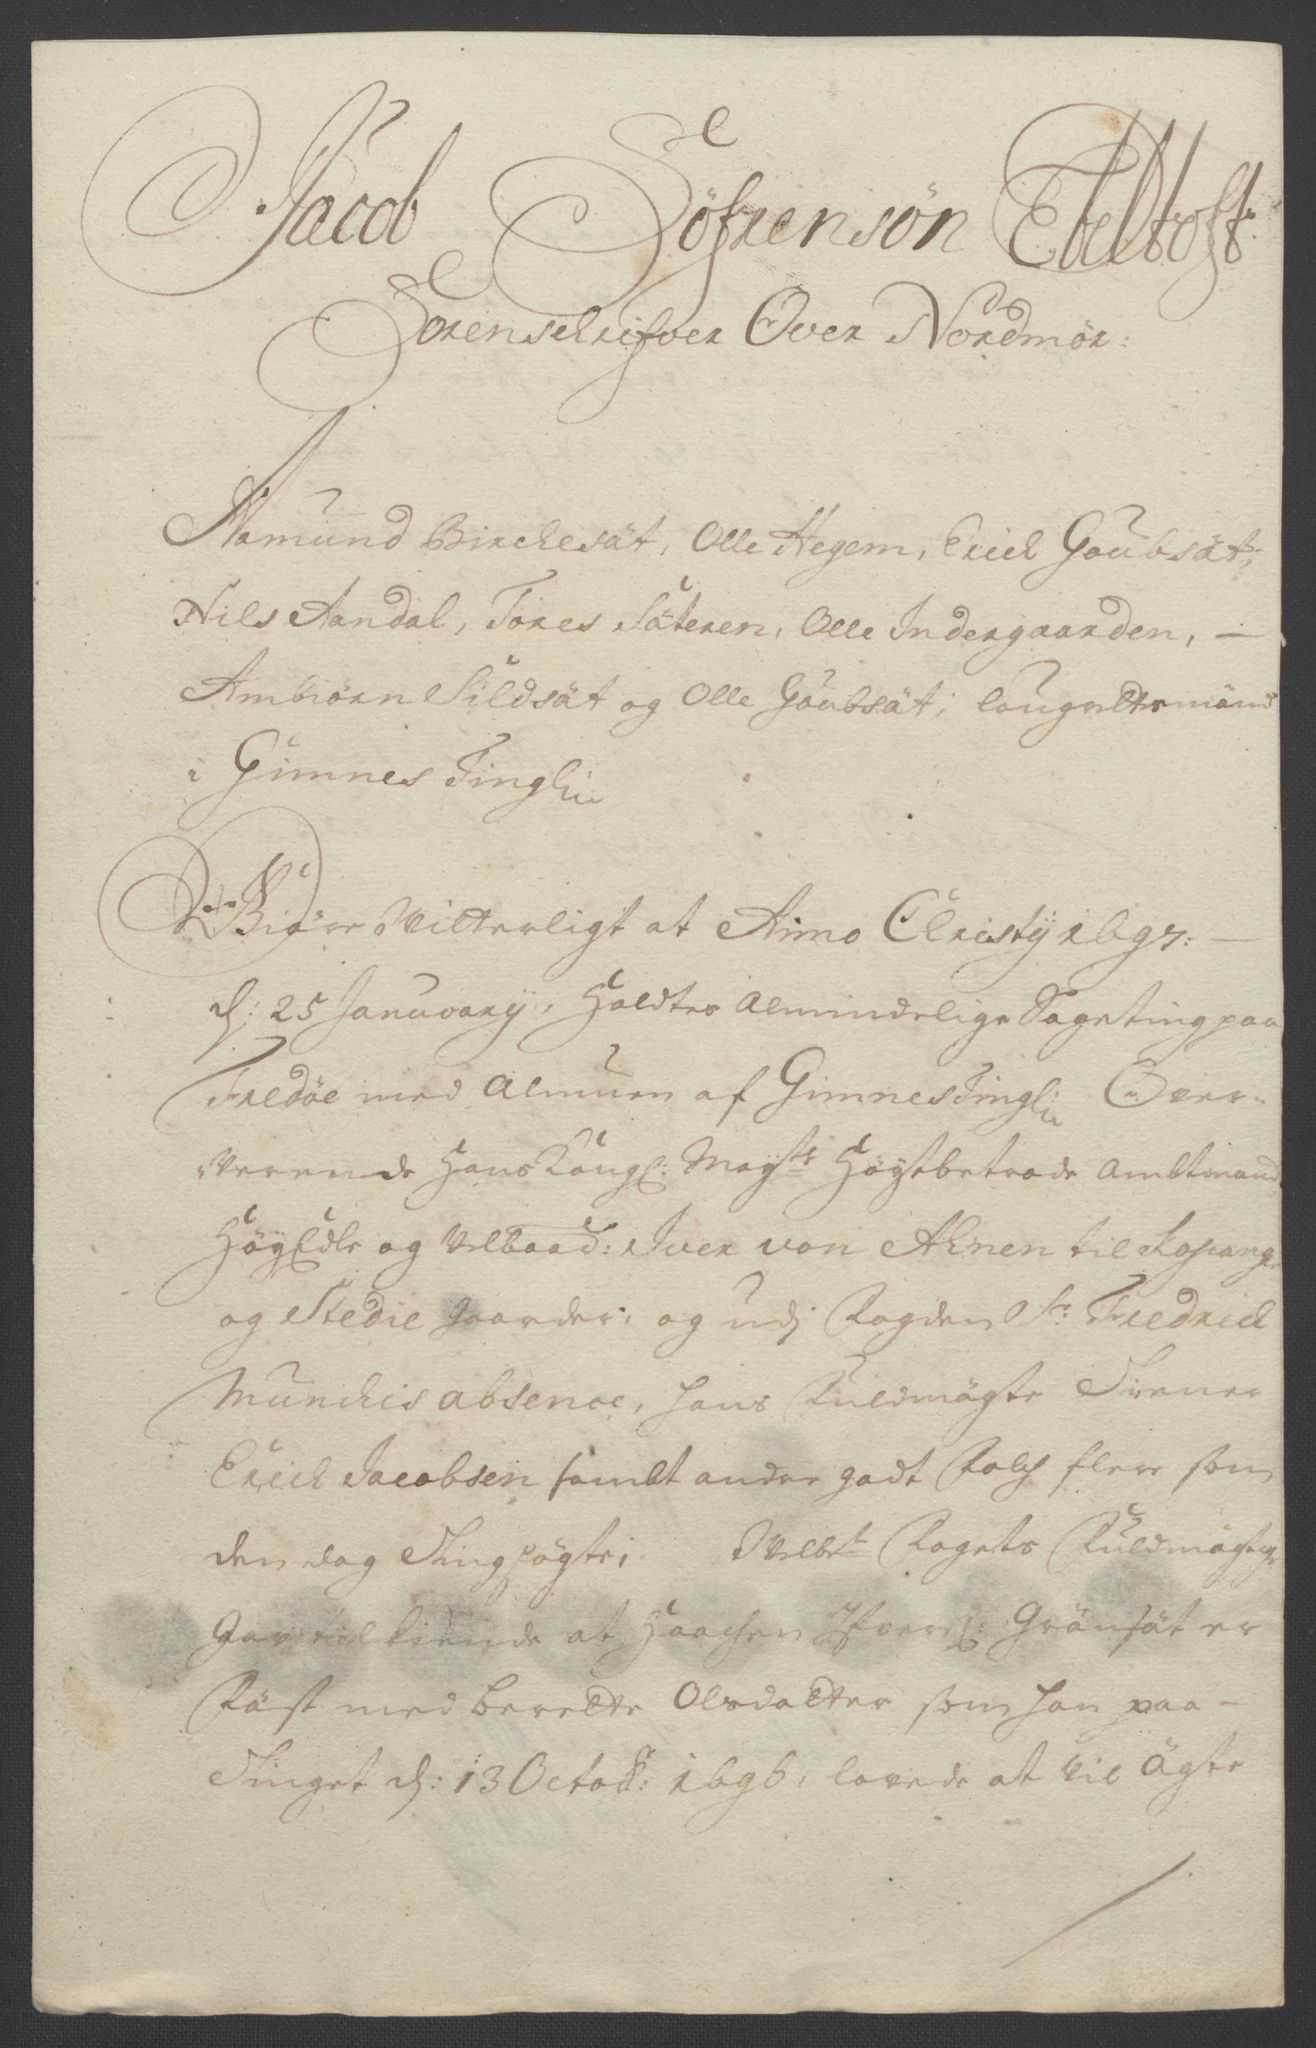 Jacob Söfrensön Ebeltoft
Sorenschrifver Over Nordmör:
Aamund Birchesät, Olle Hegem, Erich Goubsät,
Nils Aandal, Tores Säteren, Olle Indergaarden, —
Ambiörn Sildsät og Olle Goubsät, lougrettesmänd
i Gimnes Tingl:
Giöre Vitterligt at Anno Christij 1697: —
d: 25 Januuary, Holdtes Almindelige Sageting paa
Fredöe med Almuen af Gimnes Tingl: Over-
werende Hans Kongl: Mayts Höystbetrode Ambtmand
HöyEdle og Velbaad: Iver von Ahnen til Kopang
og Stedie Gaarder, og udj Fogden Sr Fredrich
Munchis absence, hans Fuldmägte Tiener
Erich Jacobsen sambt andre godt Folch flere som
den dag Ting sögte, Velbte Fogets Fuldmägtige
Gav tilkiende at Haachen Iversl: Grönsät er
Fäst med Berette Olsdatter som han paa —
Tinget d: 13 Octob: 1696, lovede at vil Ägte